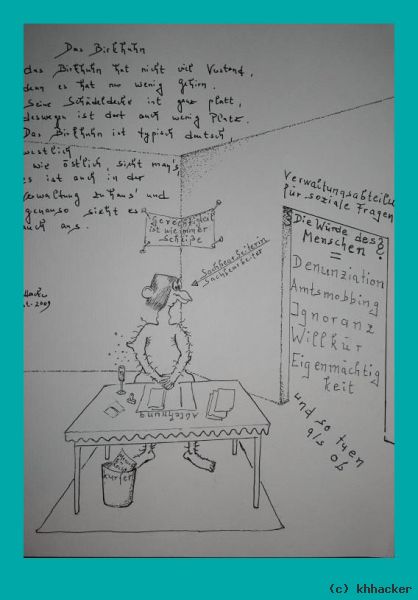 Das Birkhuhn
das Birkhuhn hat nicht viel Verstand,
denn es hat nur wenig Gehirn.
Seine Schädeldecke ist ganz platt,
deswegen ist dort auch wenig Platz.
Das Birkhuhn ist typisch deutsch,
westlich
wie östlich sieht man's,
es ist auch in der
Verwaltung zuhaus' und
genauso sieht es
auch aus.
Hacker
2009
Gerechtigkeit
ist wie immer
Scheiße
Sachbearbeiterin
Sachbearbeiter
Verwaltungsabteilu
für soziale Fragen
Die Würde des
Menschen ?
=
Denunziation
Amtsmobbing
Ignoranz
Willkür
Eigenmächtig
keit
und so tuen
als ob
Ablehnung
(c) khhacker